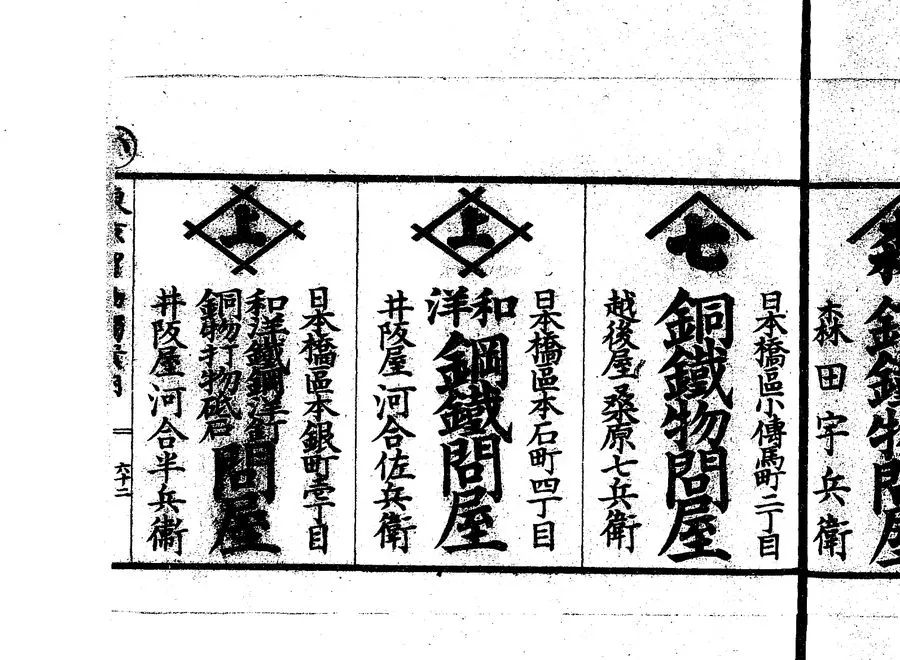 森
森田宇兵衛
七
日本橋區小傳馬町二丁目
銅鐵物問屋
越後屋桑原七兵衛
上
日本橋區本石町四丁目
和洋
鋼鐵問屋
井阪屋河合佐兵衛
上
日本橋區本銀町壹丁目
和洋鐵鋼洋釘
銅物打物砥石
問屋
井阪屋河合半兵衞
六十二